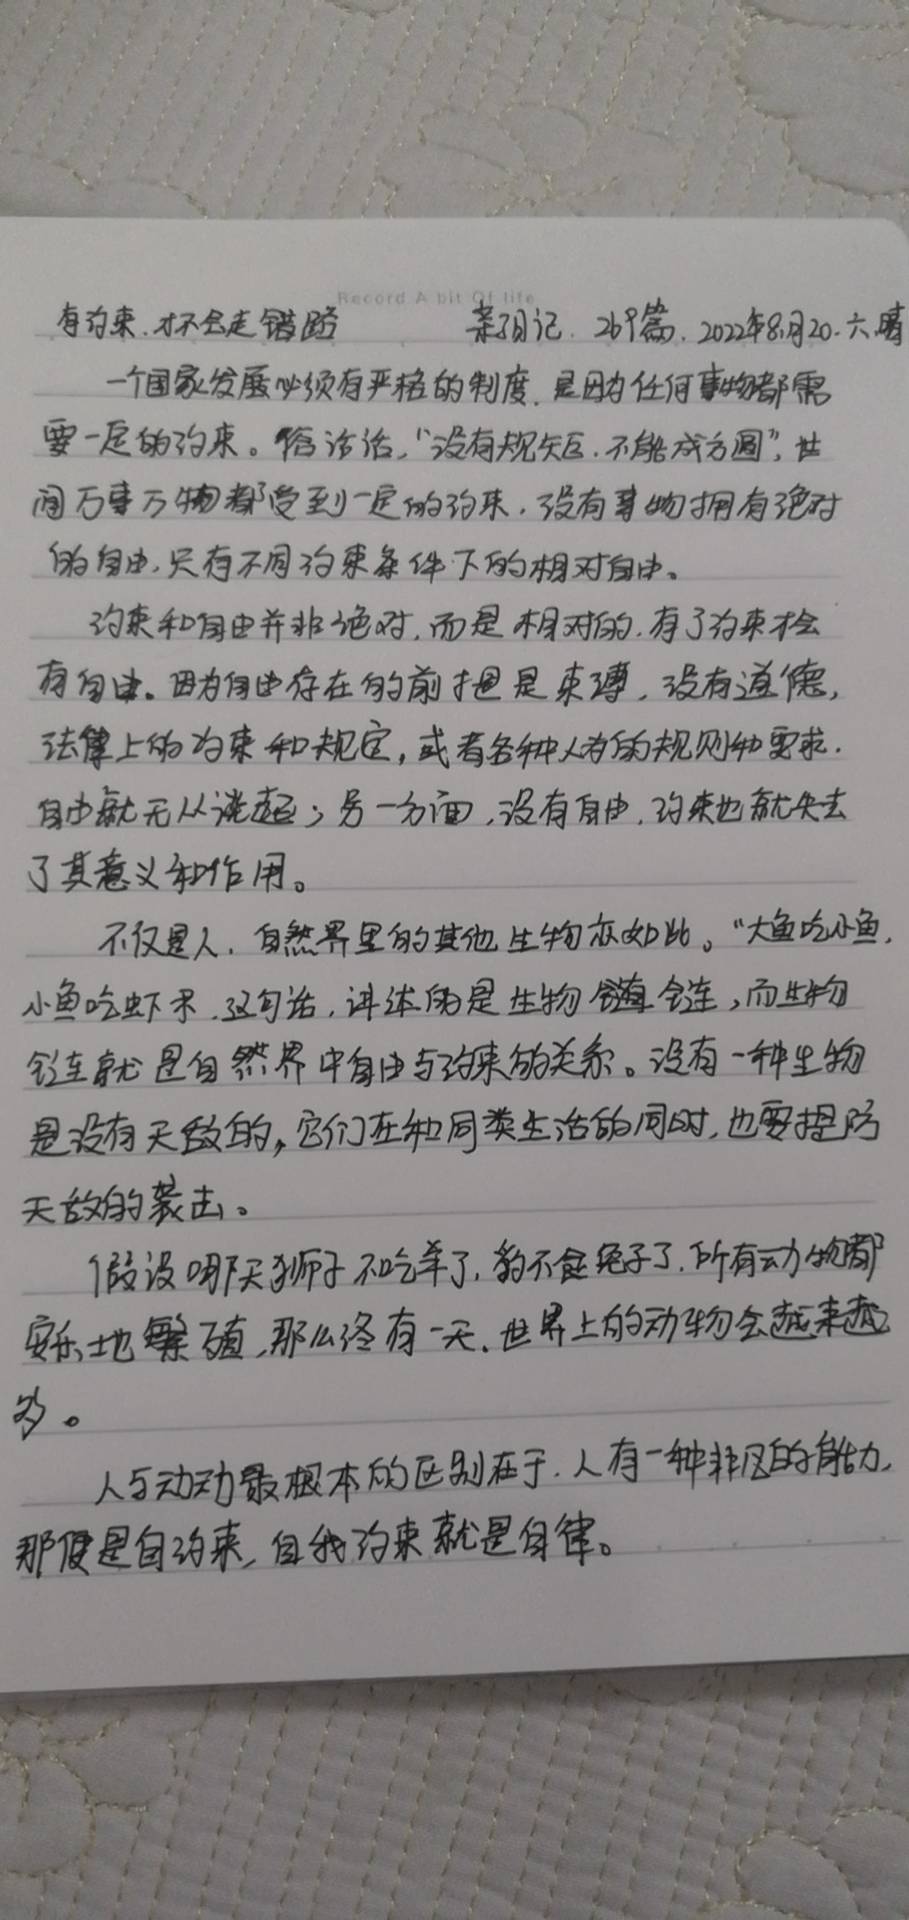 Record A bit Of life
有约束.才不会走错路 亲子日记.269篇.2022年8月20.六.晴
一个国家发展必须有严格的制度.是因为任何事物都需
要一定的约束。俗话话,“没有规矩.不能成方圆”,世
间万事万物都受到一定的约束.没有事物拥有绝对
的自由.只有不同约束条件下的相对自由。
约束和自由并非绝对.而是相对的.有了约束才会
有自由。因为自由存在的前提是束缚.没有道德,
法律上的约束和规定,或者各种人为的规则和要求.
自由就无从谈起;另一方面,没有自由.约束也就失去
了其意义和作用。
不仅是人.自然界里的其他生物亦如此。“大鱼吃小鱼.
小鱼吃虾米.这句话.讲述的是生物链,而生物
链就是自然界中自由与约束的关系。没有一种生物
是没有天敌的,它们在和同类生活的同时.也要提防
天敌的袭击。
假设哪天狮子不吃羊了.豹不食兔子了.所有动物都
安乐地繁殖,那么终有一天.世界上的动物会越来越
多。
人与动动最根本的区别在于.人有一种非凡的能力.
那便是自约束,自我约束就是自律。